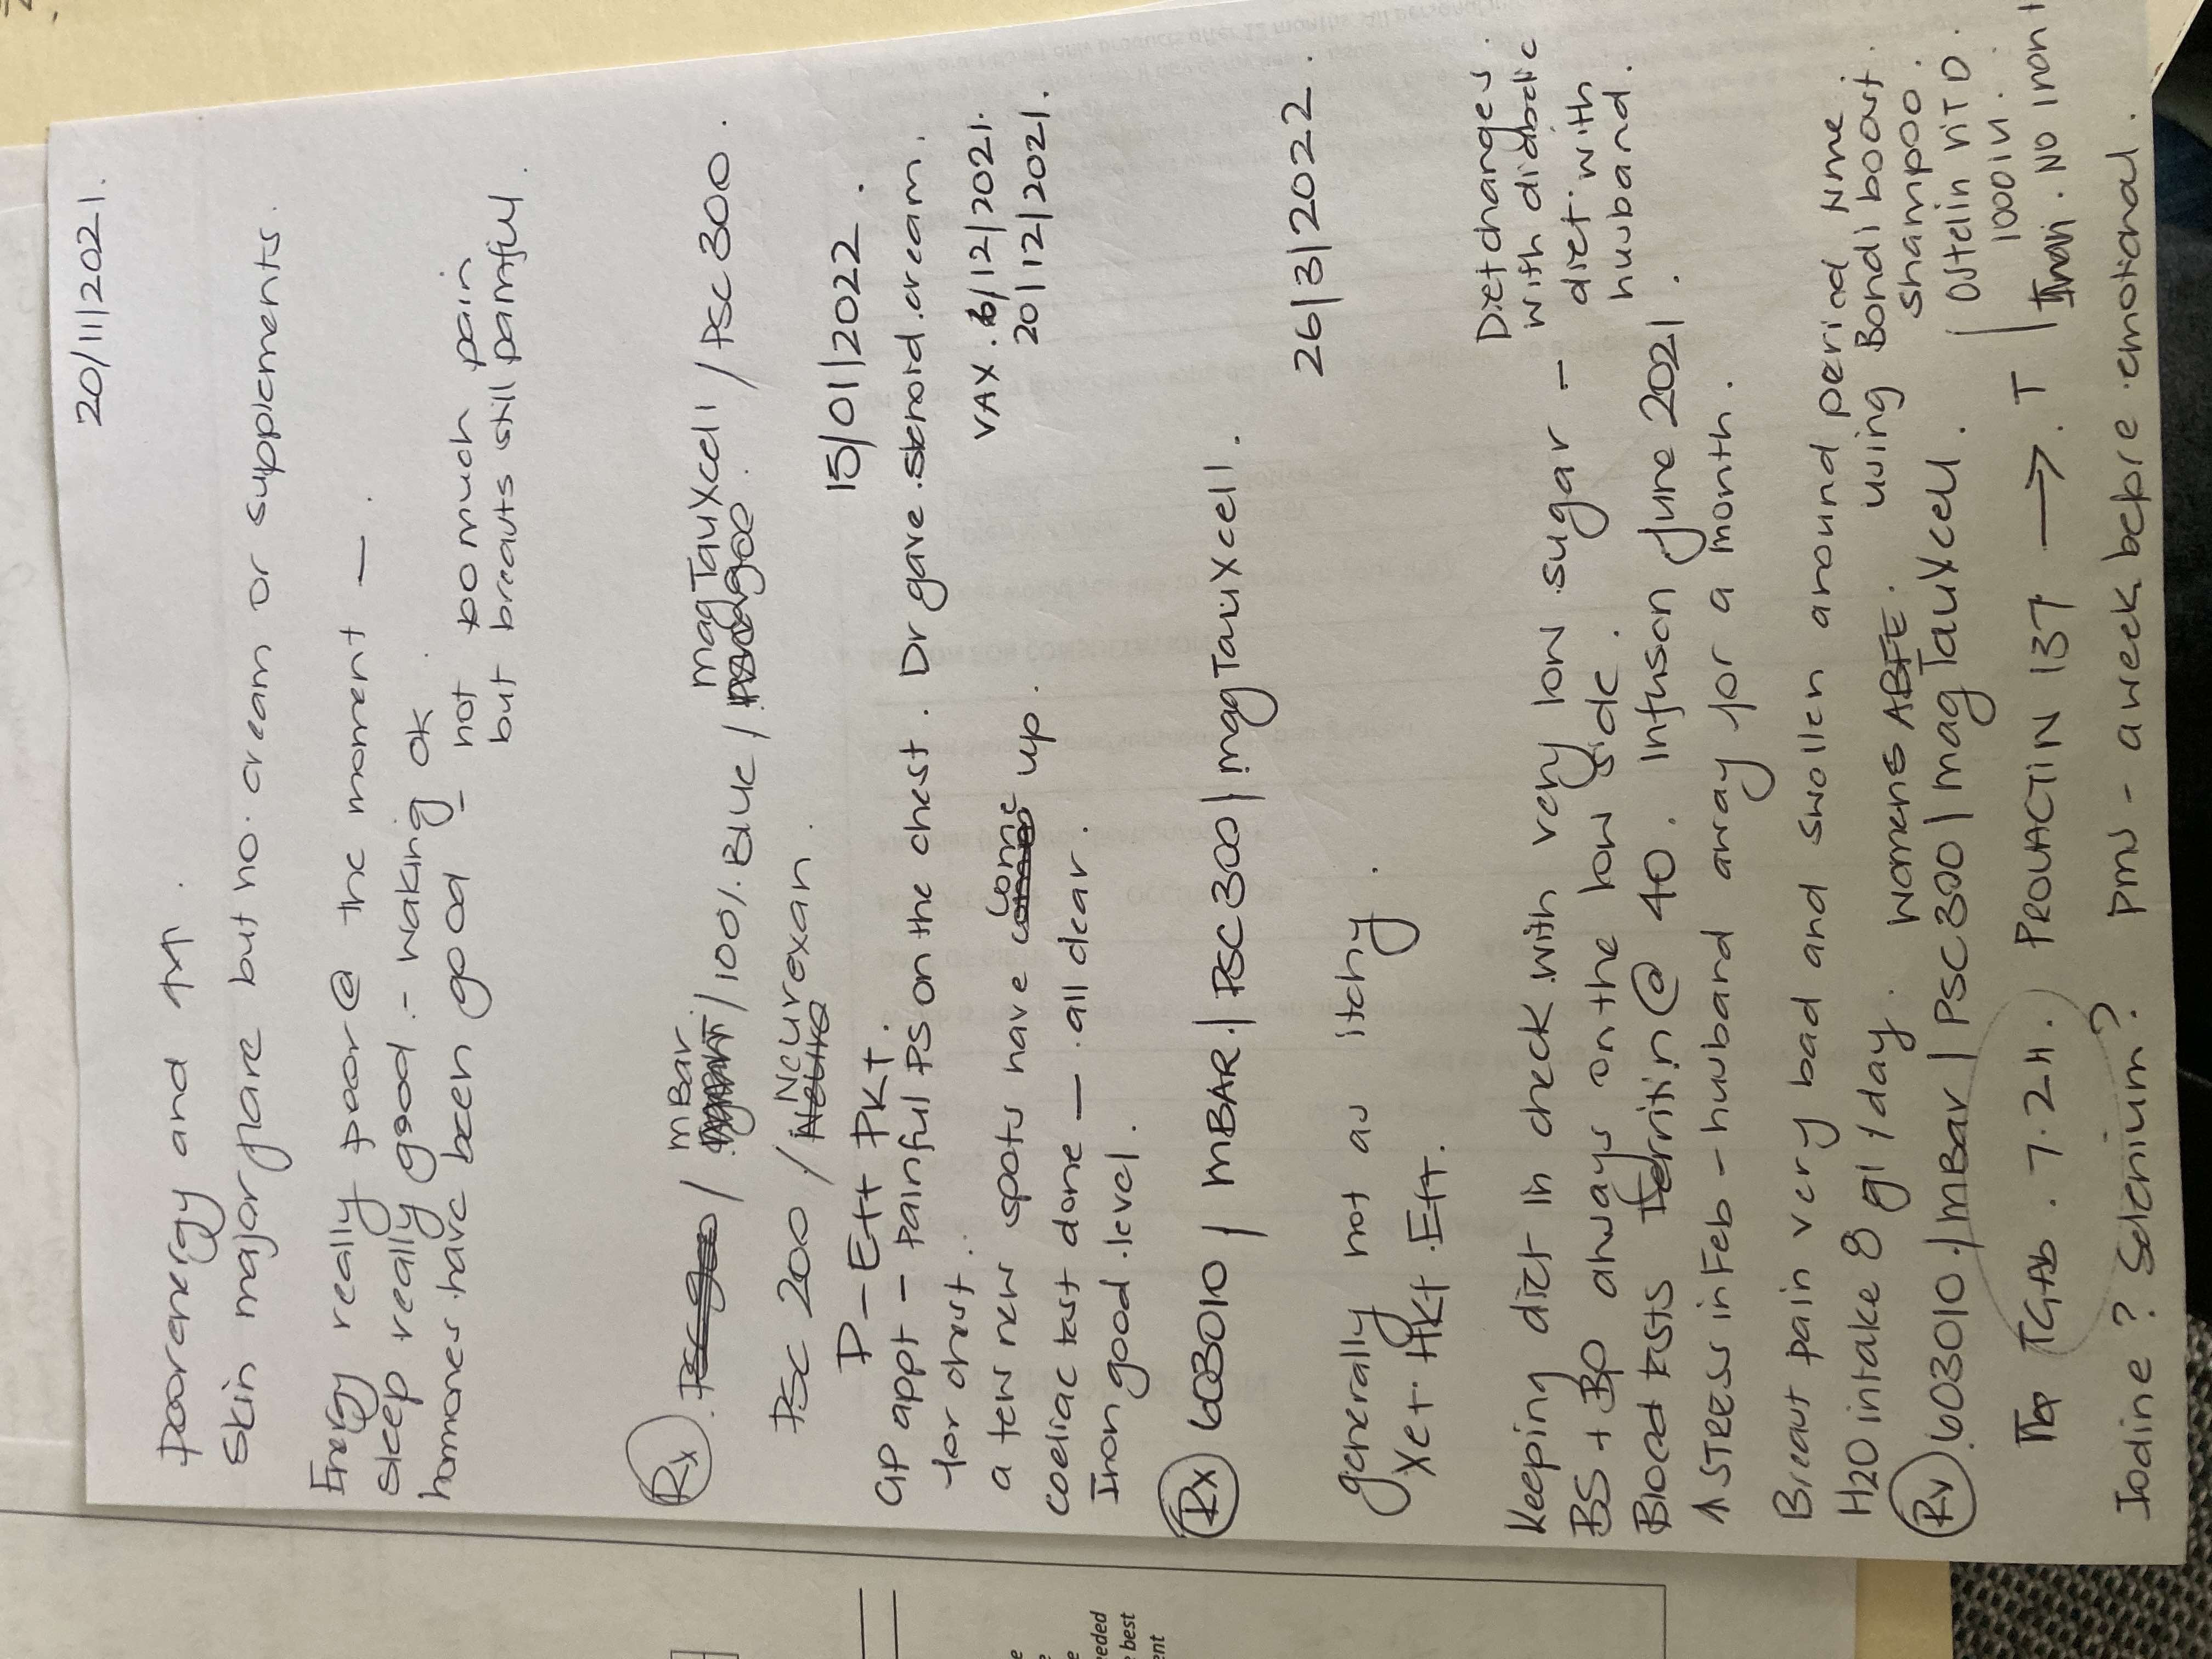 20/11/2021.
poor energy and ↑↑↑.
Skin major flare but no cream or supplements.
Energy really poor @ the moment —.
sleep really good - waking ok.
hormones have been good - not too much pain
but breasts still painful.
mBar magTauXcell / PSC 300.
Rx / 100% Blue /
PSC 200 / Neurexan.
15/01/2022.
P — Ett PKt.
GP appt - painful PS on the chest. Dr gave steroid cream.
for chest.
VAX. 6/12/2021.
20/12/2021.
a few new spots have come up.
coeliac test done — all clear.
Iron good level.
Rx 603010 / mBAR / PSC 300 / magTauXcell.
26/3/2022.
generally not as itchy.
Xet. HKt. Ett.
Keeping diet in check with very low sugar - Diet changes.
with diabetic
diet with
husband.
BS + BP always on the low side.
Blood tests ferritin @ 40. Infusion June 2021.
↑ STRESS in Feb - husband away for a month.
Breast pain very bad and swollen around period time
H2O intake 8 gl/day. womens ABFE. using Bondi boost
shampoo.
Rx 603010. / mBar / PSC 300 / magTauXcell. / Ostelin VIT D.
1000iu.
TGAb. 7.2H. PROLACTIN 137 → . T / Iron. NO iron
Iodine? Selenium? pms - a week before emotional.